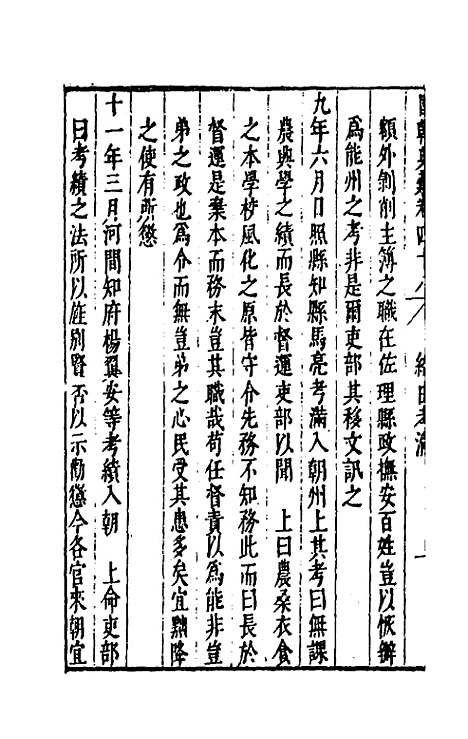 國朝典彙卷四十八 給由考滿
額外剝削主簿之職在佐理縣政撫安百姓豈以恢辦
爲能州之考非是爾吏部其移文訊之
九年六月日照縣知縣馬亮考滿入朝州上其考曰無課
農興學之績而長於督運吏部以聞　上曰農桑衣食
之本學校風化之原皆守令先務不知務此而曰長於
督運是棄本而務末豈其職哉苟任督責以爲能非豈
弟之政也爲令而無豈弟之心民受其患多矣宜黜降
之使有所懲
十一年三月河間知府楊冀安等考績入朝　上命吏部
曰考績之法所以旌別賢否以示勸懲今各官來朝宜